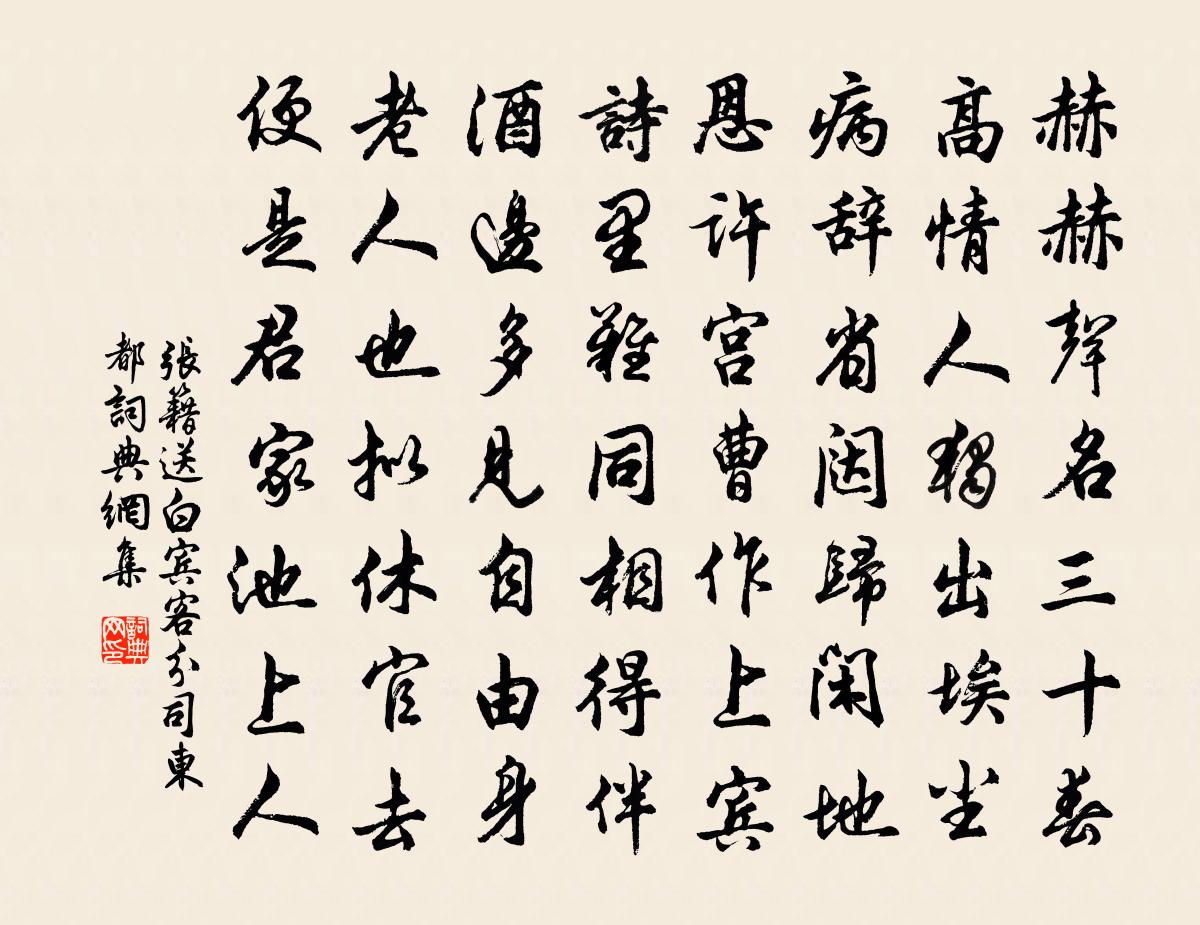 赫赫聲名三十春
高情人獨出埃尘
病辞省闼歸閑地
恩许宫曹作上宾
詩里難同相得伴
酒邊多見自由身
老人也拟休官去
便是君家池上人
張籍送白宾客分司東
都詞典網集
詞典网印